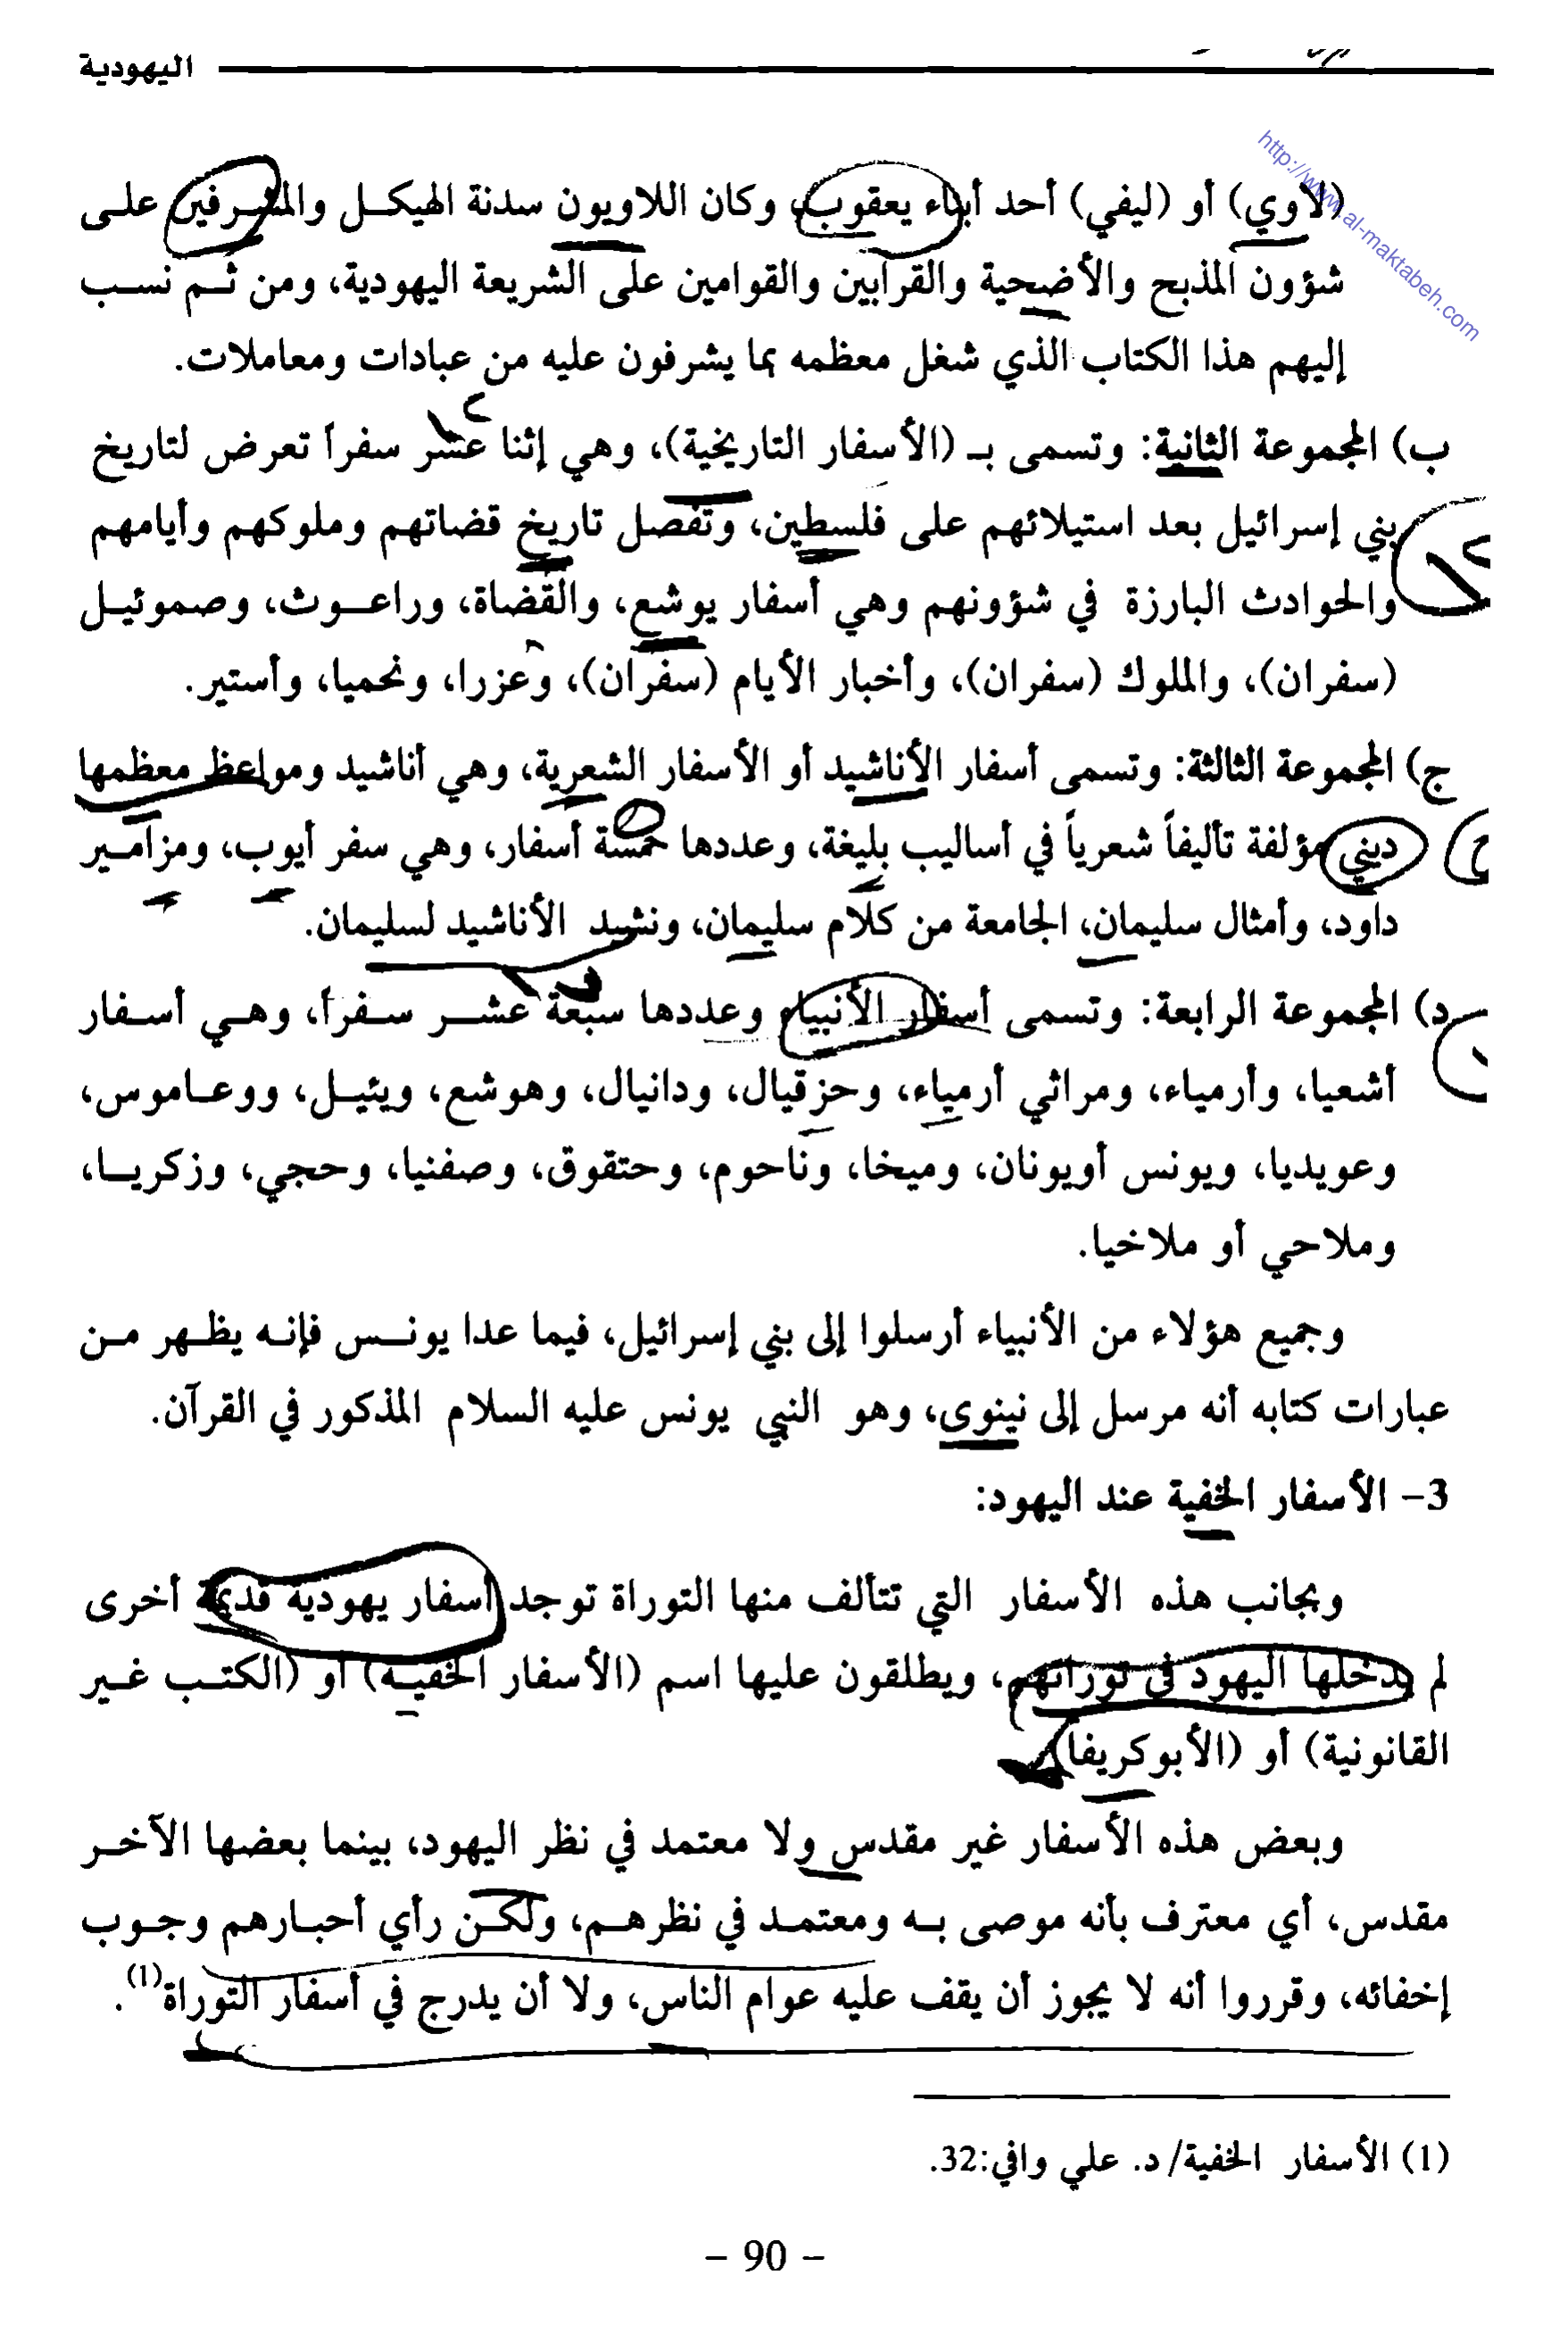 اليهودية
http://www.al-maktabeh.com
(لاوي) أو (ليفي) أحد أبناء يعقوب، وكان اللاويون سدنة الهيكل والمشرفين على
شؤون المذبح والأضحية والقرابين والقوامين على الشريعة اليهودية، ومن ثم نسب
إليهم هذا الكتاب الذي شغل معظمه بما يشرفون عليه من عبادات ومعاملات.
ب) المجموعة الثانية: وتسمى بـ (الأسفار التاريخية)، وهي إثنا عشر سفراً تعرض لتاريخ
بني إسرائيل بعد استيلائهم على فلسطين، وتفصل تاريخ قضاتهم وملوكهم وأيامهم
والحوادث البارزة في شؤونهم وهي أسفار يوشع، والقضاة، وراعوث، وصموئيل
(سفران)، والملوك (سفران)، وأخبار الأيام (سفران)، وعزرا، ونحميا، وأستير.
ج) المجموعة الثالثة: وتسمى أسفار الأناشيد أو الأسفار الشعرية، وهي أناشيد ومواعظ معظمها
ديني مؤلفة تأليفاً شعرياً في أساليب بليغة، وعددها خمسة أسفار، وهي سفر أيوب، ومزامير
داود، وأمثال سليمان، الجامعة من كلام سليمان، ونشيد الأناشيد لسليمان.
د) المجموعة الرابعة: وتسمى أسفار الأنبياء وعددها سبعة عشر سفراً، وهي أسفار
أشعيا، وأرمياء، ومراثي أرمياء، وحزقيال، ودانيال، وهوشع، ويئيل، ووعاموس،
وعويديا، ويونس أويونان، وميخا، وناحوم، وحتقوق، وصفنيا، وحجي، وزكريا،
وملاحي أو ملاخيا.
وجميع هؤلاء من الأنبياء أرسلوا إلى بني إسرائيل، فيما عدا يونس فإنه يظهر من
عبارات كتابه أنه مرسل إلى نينوى، وهو النبي يونس عليه السلام المذكور في القرآن.
3- الأسفار الخفية عند اليهود:
وبجانب هذه الأسفار التي تتألف منها التوراة توجد أسفار يهودية قديمة أخرى
لم يدخلها اليهود في توراتهم، ويطلقون عليها اسم (الأسفار الخفية) أو (الكتب غير
القانونية) أو (الأبوكريفا)
وبعض هذه الأسفار غير مقدس ولا معتمد في نظر اليهود، بينما بعضها الآخر
مقدس، أي معترف بأنه موصى به ومعتمد في نظرهم، ولكن رأي أحبارهم وجوب
إخفائه، وقرروا أنه لا يجوز أن يقف عليه عوام الناس، ولا أن يدرج في أسفار التوراة(1).
(1) الأسفار الخفية/ د. علي وافي:32.
- 90 -